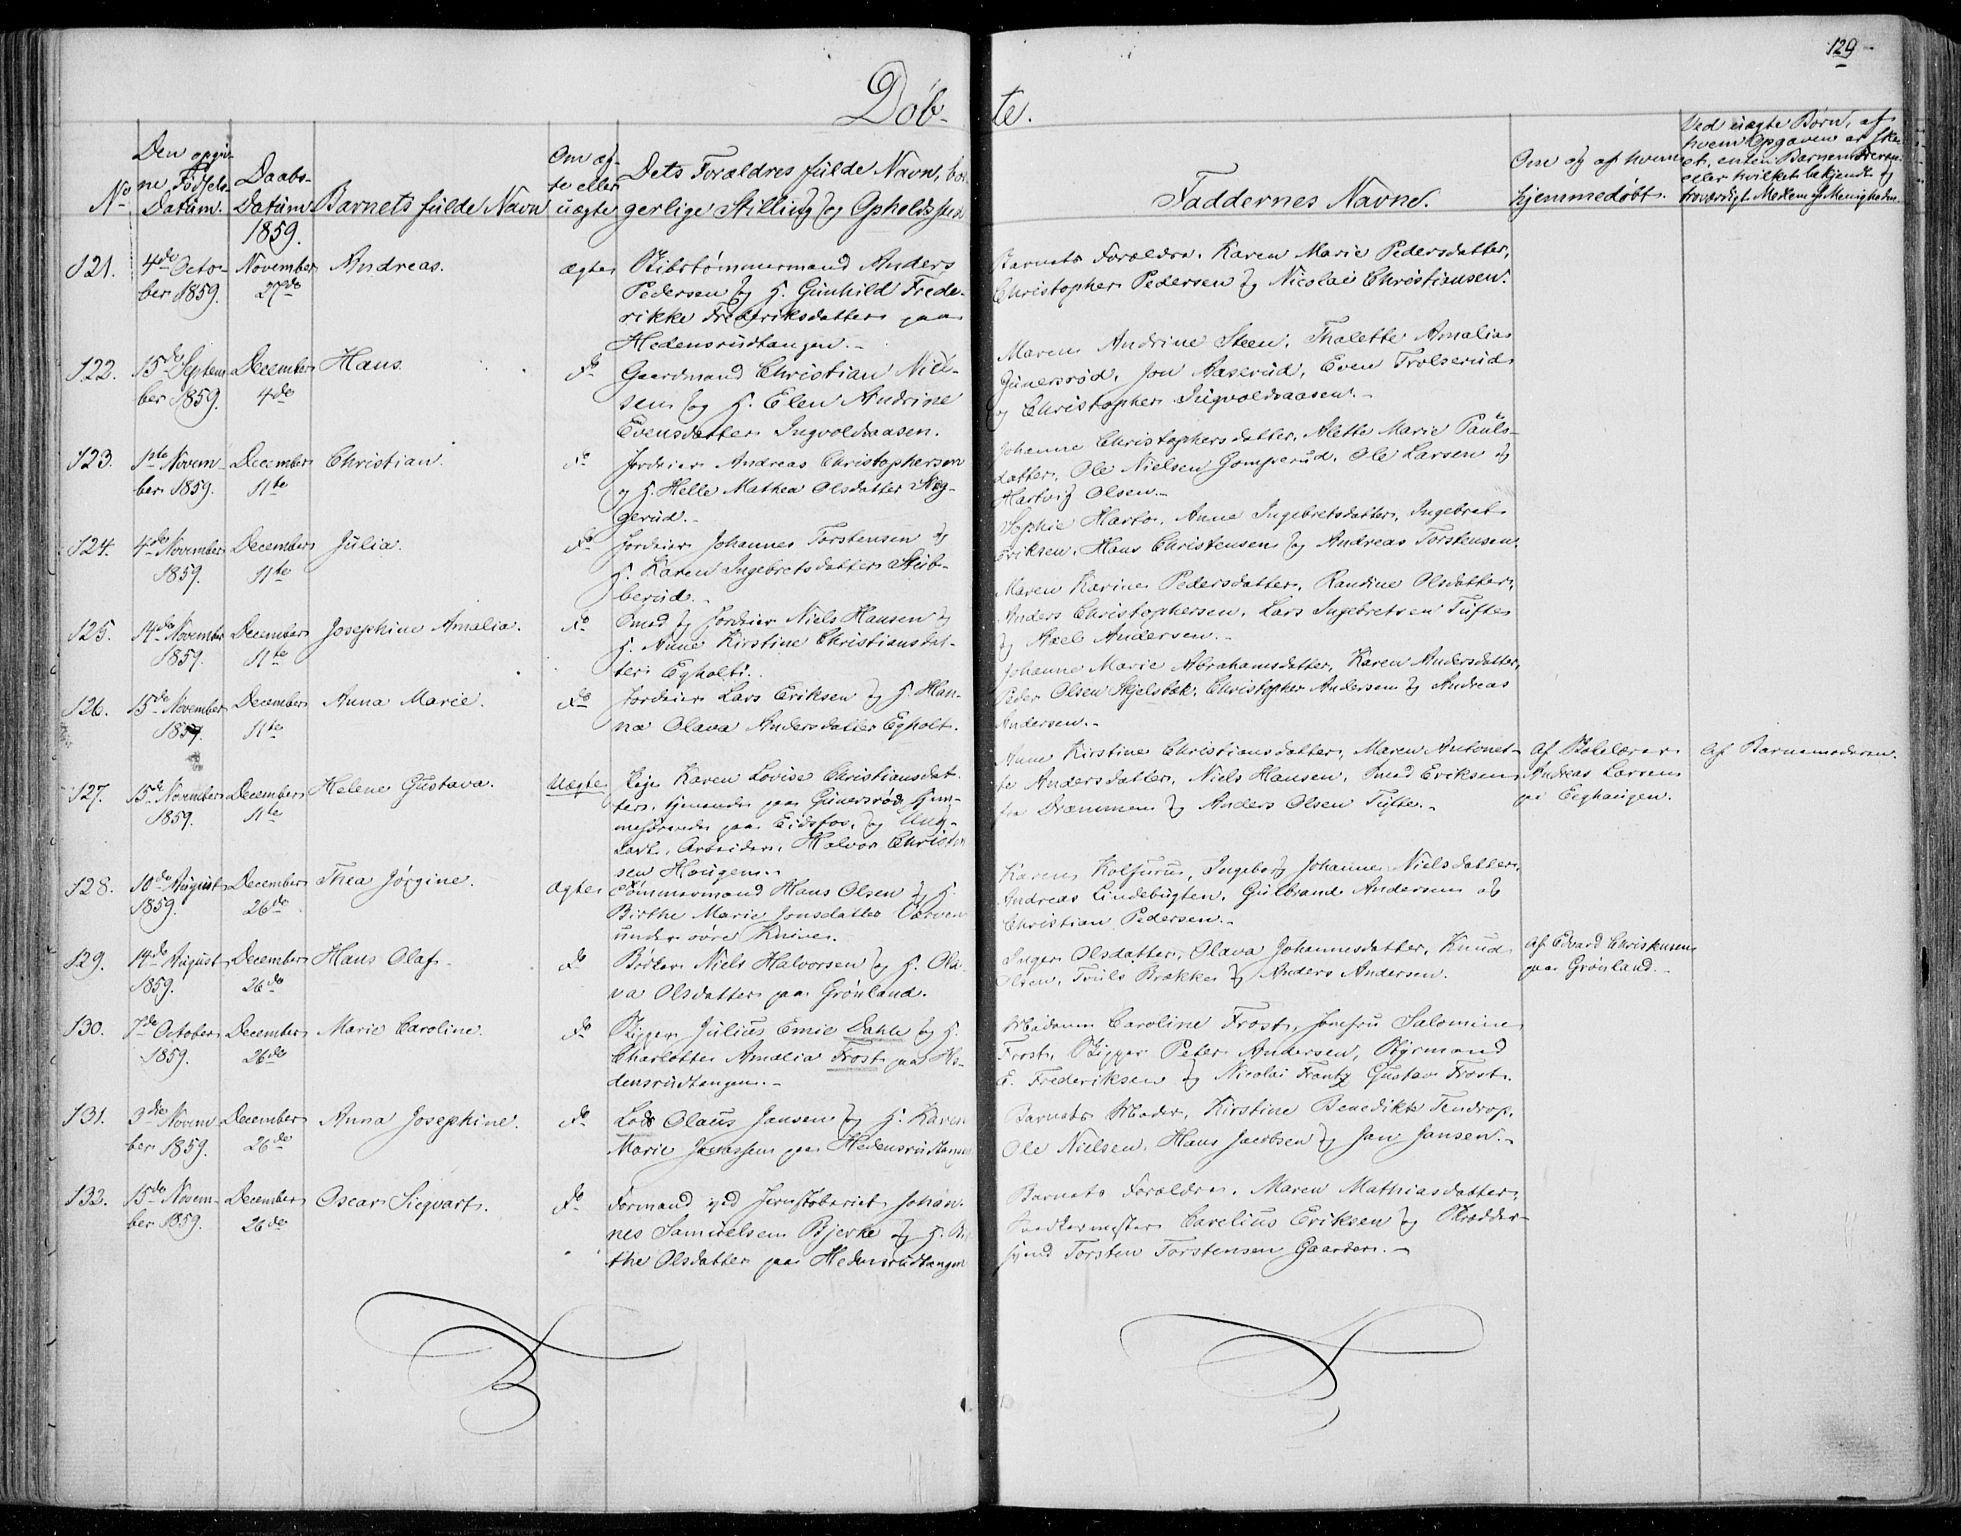 129
Døb-te.
No
Den opgiv-
ne Fødsels-
Datum.
Daabs-
Datum
1859.
Barnets fulde Navn
Om æg-
te eller
uægte
Dets Forældres fulde Navn, bor-
gerlige Stilling og Opholdssted
Faddernes Navne.
Om og af hvem
hjemmedøbt.
Ved uægte Børn, af
hvem Opgaven er ske-
et, enten Barnemoderen
eller hvilket bekjendt og
troværdigt Medlem af Menigheden
121.
4de Octo-
ber 1859.
November
27de
Andreas.
ægte
Skibstømmermand Anders
Pedersen og H. Gunhild Frede-
rikke Frederiksdatter paa
Hedensrudtangen.
Barnets Forældre, Karen Marie Pedersdatter,
Christopher Pedersen og Nicolai Christiansen.
122.
15de Septem
ber 1859.
December
4de
Hans.
do
Gaardmand Christian Niel-
sen og H. Elen Andrine
Evensdatter Ingvoldsaasen.
Maren Andrine Steen, Thalette Amalia
Gunersrød, Jon Aaserud, Even Trolserud
og Christopher Ingvoldsaasen.
123.
1ste Novem-
ber 1859.
December
11te
Christian.
do
Jordeier Andreas Christophersen
og H. Helle Mathea Olsdatter
gerud.
Johanne Christophersdatter, Alette Marie Pauls-
datter, Ole Nielsen Gomperud, Ole Larsen og
Hartvig Olsen.
124.
4de November
1859.
December
11te
Julia.
do
Jordeier Johannes Torstensen og
H. Karen Ingebretsdatter Stub-
berud.
Sophie Harto, Anne Ingebretsdatter, Ingebret
Eriksen, Hans Christensen og Andreas Torstensen.
125.
14de November
1859.
December
11te
Josephine Amalia.
do
Smed og Jordeier Niels Hansen og
H. Anne Kirstine Christiansdat-
ter Egholt.
Maren Karine Pedersdatter, Randine Olsdatter,
Anders Christophersen, Lars Ingebretsen Tufte
og Axel Andersen.
126.
15de November
1859.
December
11te
Anna Marie.
do
Jordeier Lars Eriksen og H. Han-
na Olava Andersdatter Egholt.
Johanne Marie Abrahamsdatter, Karen Andersdatter,
Peder Olsen Skjelsbæk, Christopher Andersen og Andreas
Andersen.
127.
15de November
1859.
December
11te
Helene Gustava.
Uægte
Pige Karen Lovise Christiansdat-
ter, tjenende paa Gunersrød, hjem-
mehørende paa Eidsfos, og Ung-
karl, Arbeider, Halvor Christen
sen Haugen.
Anne Kirstine Christiansdatter, Maren Antonet-
te Andersdatter, Niels Hansen, Smed Eriksen
fra Drammen og Anders Olsen Tufte.
Af Skolelærer
Andreas Larsen
paa Eeghaugen.
Af Barnemoderen.
128.
10de August
1859.
December
26de
Thea Jørgine.
ægte
Tømmermand Hans Olsen og H.
Birthe Marie Jonsdatter
under søre Knive.
Karen Kolfurus, Ingeborg Johanne Nielsdatter,
Andreas Lindebugten, Gulbrand Andersen og
Christian Pedersen.
129.
14de August
1859.
December
26de
Hans Olaf.
do
Bødker Niels Halvorsen og H. Ola-
va Olsdatter paa Grønland.
Inger Olsdatter, Olava Johannesdatter, Knud
Olsen, Truls Brække og Anders Andersen.
Af Edvard Christensen
paa Grønland.
130.
7de October
1859.
December
26de
Marie Caroline.
do
Skipper Julius Emie Dahle og H.
Charlotte Amalia Frost paa He-
densrudtangen.
Madame Caroline Frost, Jomfru Salomine
Frost, Skipper Peter Andersen, Styrmand
E. Frederiksen og Nicolai Frantz Gustav Frost.
131.
3die Novem
ber 1859.
December
26de
Anna Josephine.
do
Lods Olaus Jansen og H. Karen
Marie Jonassen paa Hedensrudtangen
Barnets Moder, Kirstine Benedikte Tendrop,
Ole Nielsen, Hans Jacobsen og Jan Jansen.
132.
15de Novem-
ber 1859.
December
26de
Oscar Sigvart.
do
Formand ved Jernstøberiet Johan-
nes Samuelsen Bjerke og H. Bir
the Olsdatter paa Hedensrudtangen
Barnets Forældre, Maren Mathiasdatter,
Snedkermester Carelius Eriksen og Skrædder-
svend Torsten Torstensen Gaarder.